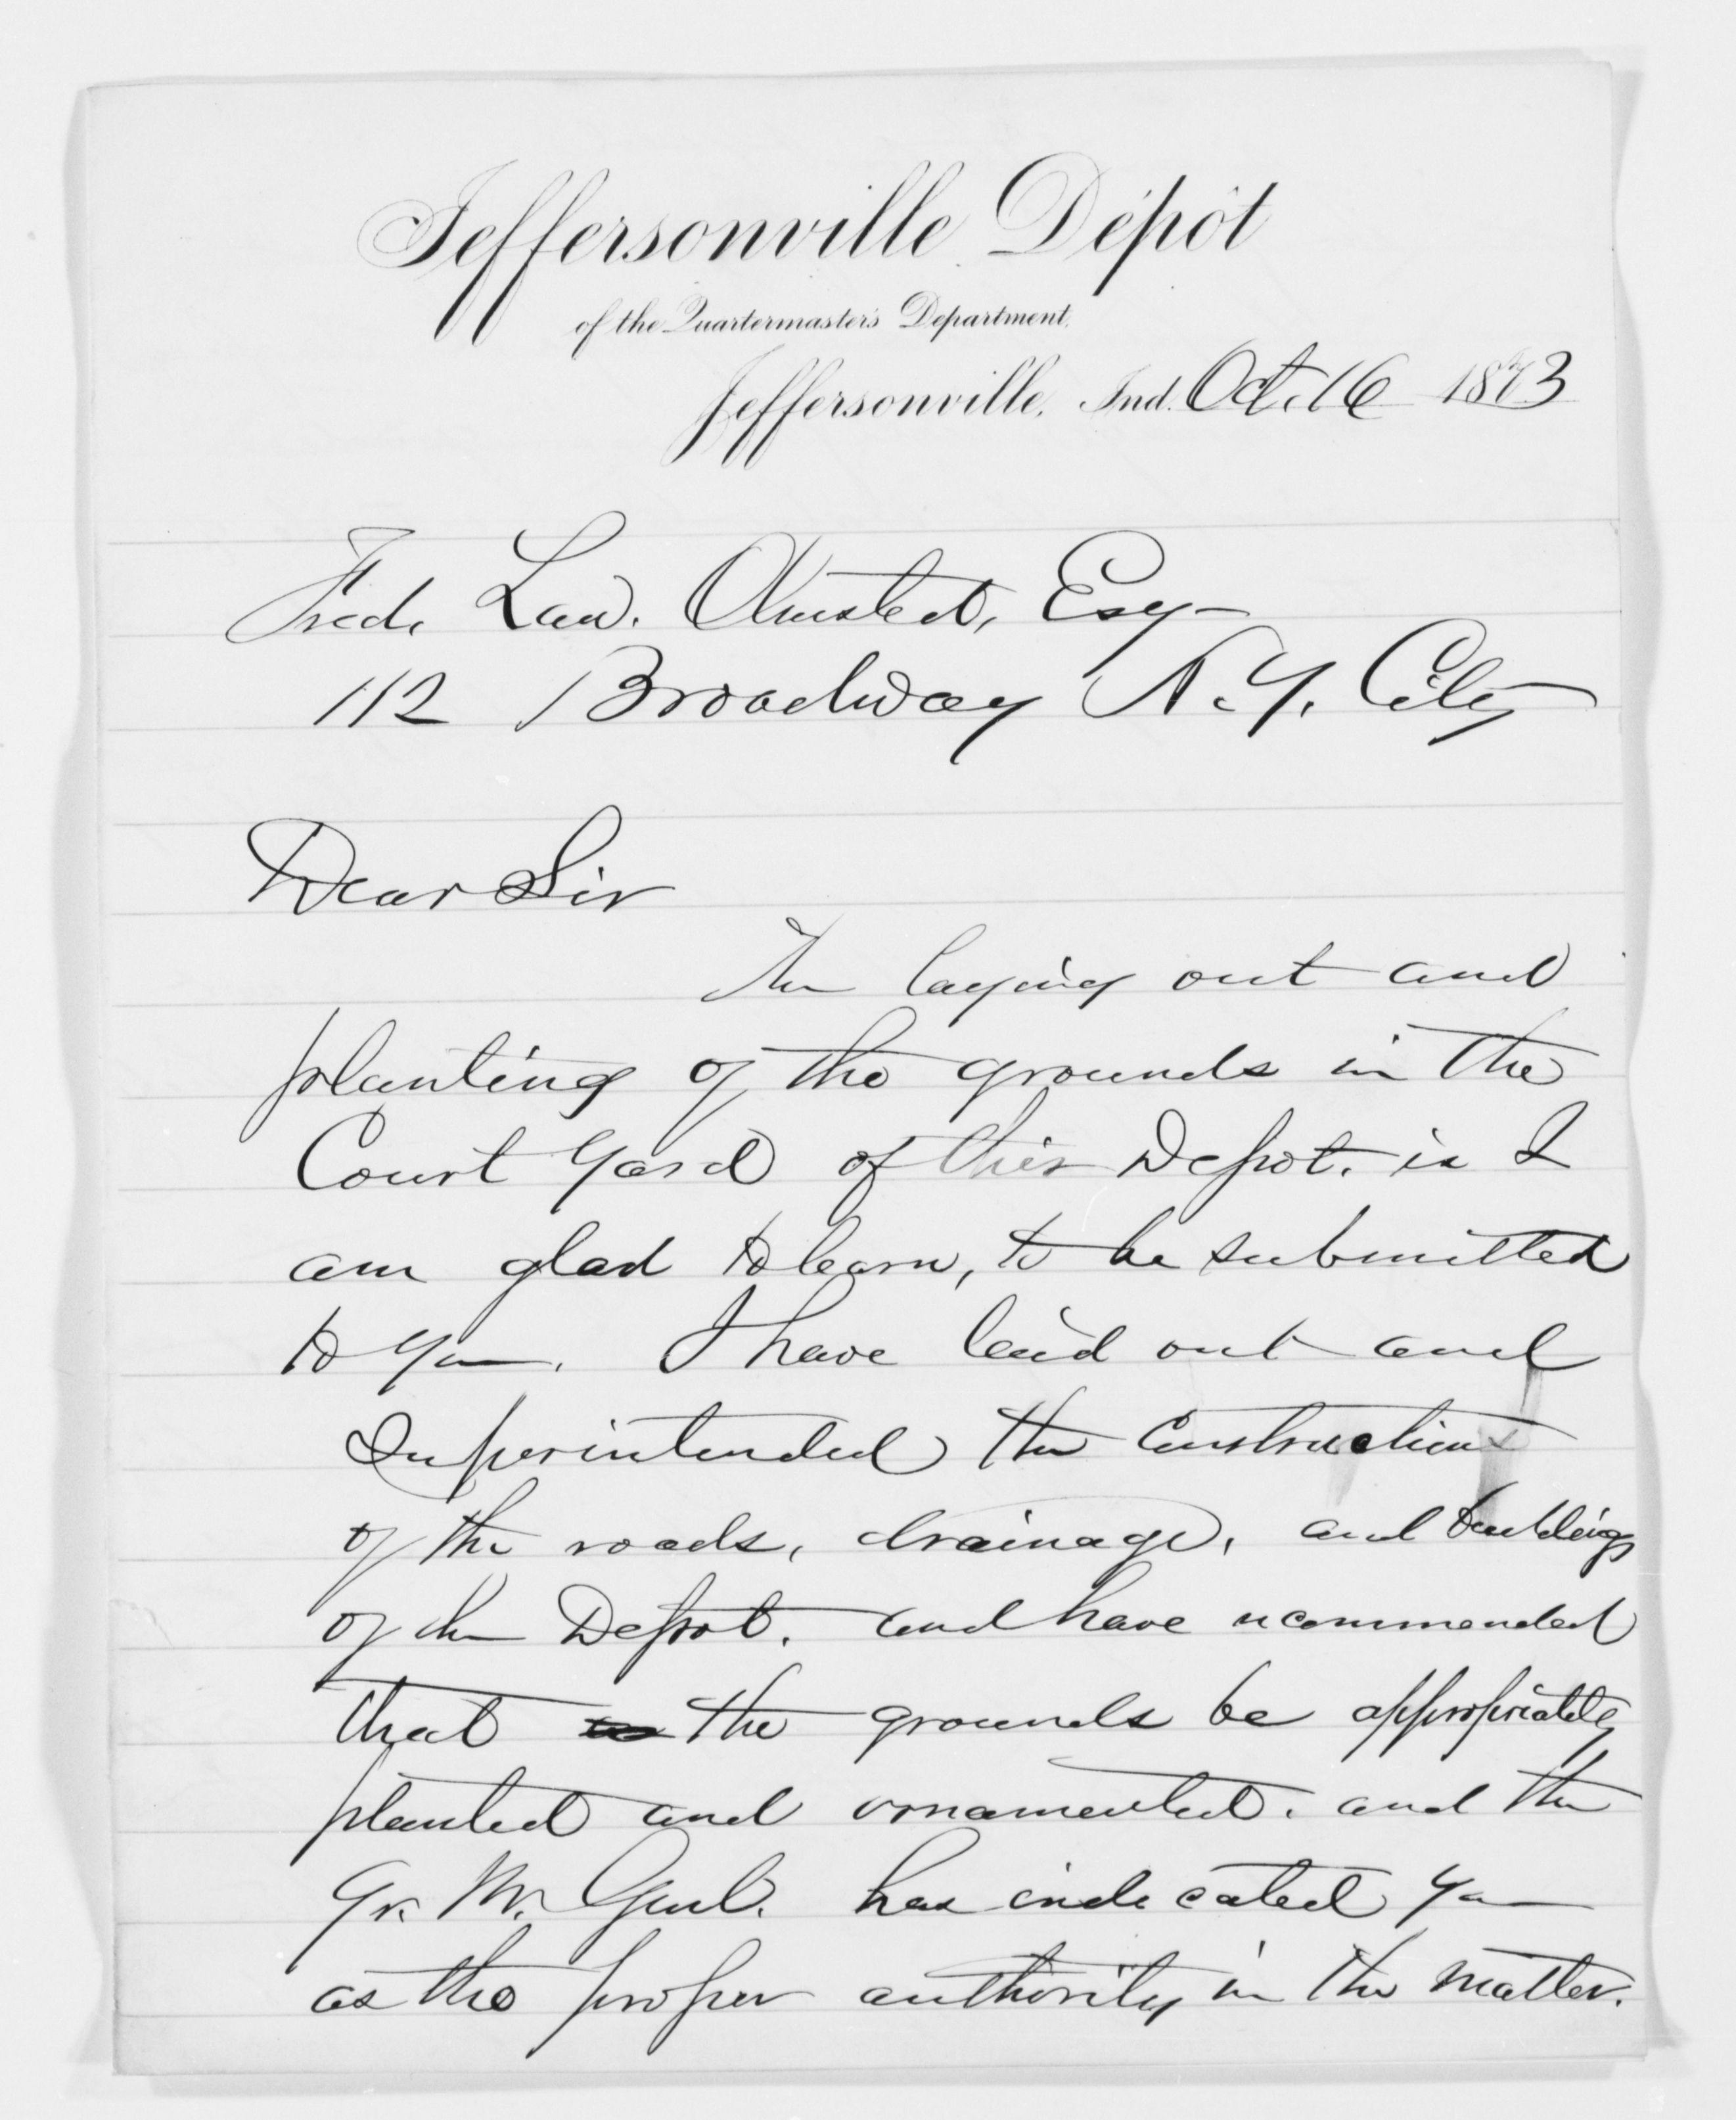 Jeffersonville Dépôt
of the Quartermaster's Department,
Jeffersonville, Ind. Oct. 16 1873
Fred. Law. Olmsted, Esq
112 Broadway N.Y. City
Dear Sir
The laying out and
planting of the grounds in the
Court Yard of this Depot. is I
am glad to learn, to be submitted
to you. I have laid out and
Superintended the Construction
of the roads, drainage, and buildings
of the Depot. and have recommended
that the grounds be appropriately
planted and ornamented. and the
Qr. M. Genl. has indicated you
as the proper authority in the matter.